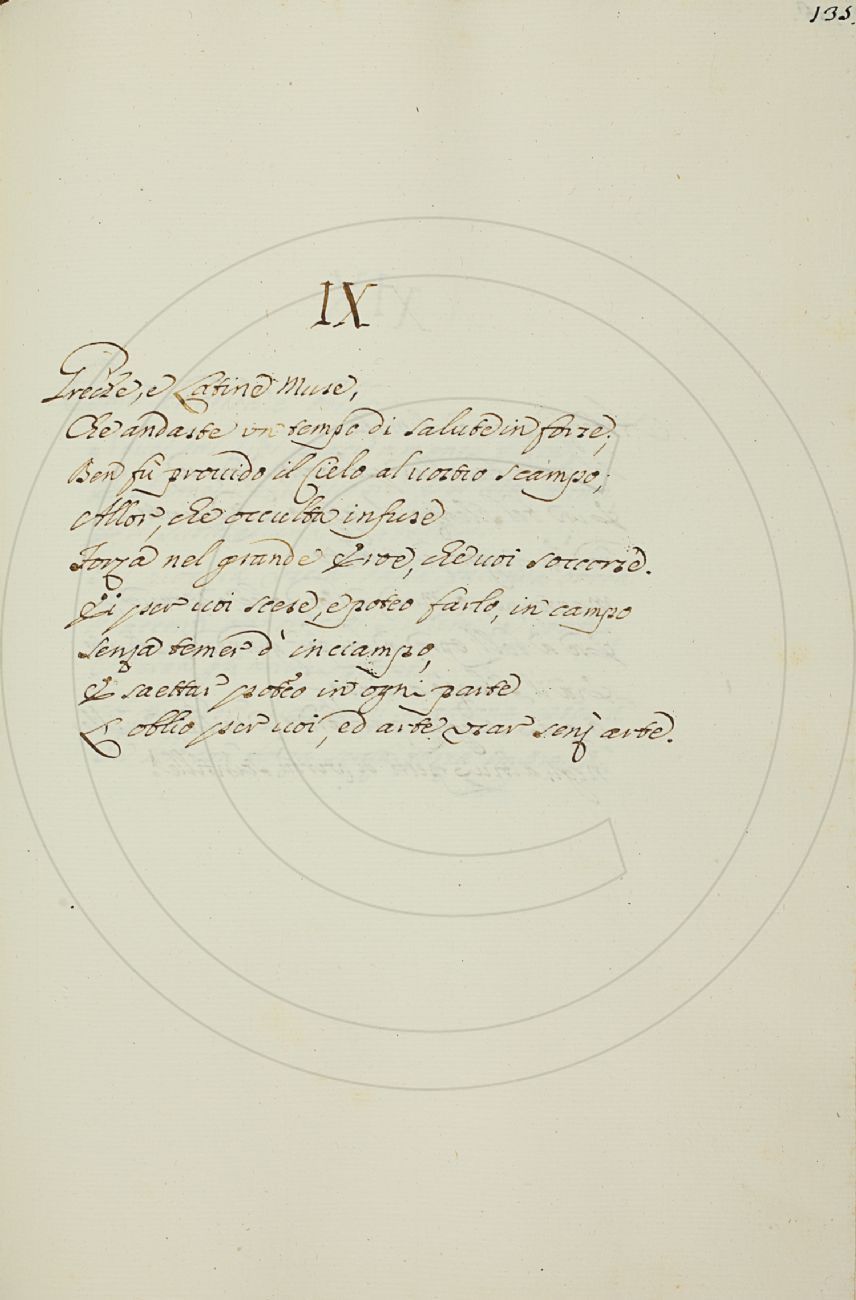 135.
IX
Greche, e Latine Muse,
Che andaste un tempo di salute in forse;
Ben fù prouido il Cielo al uostro scampo,
Allor, che occulta infuse
Forza nel grande Eroe, che uoi soccorse.
Ei per uoi scese, e poteo farlo, in campo
Senza temer d' inciampo,
E saettar poteo in ogni parte
L' oblio per uoi, ed arte usar senz' arte.